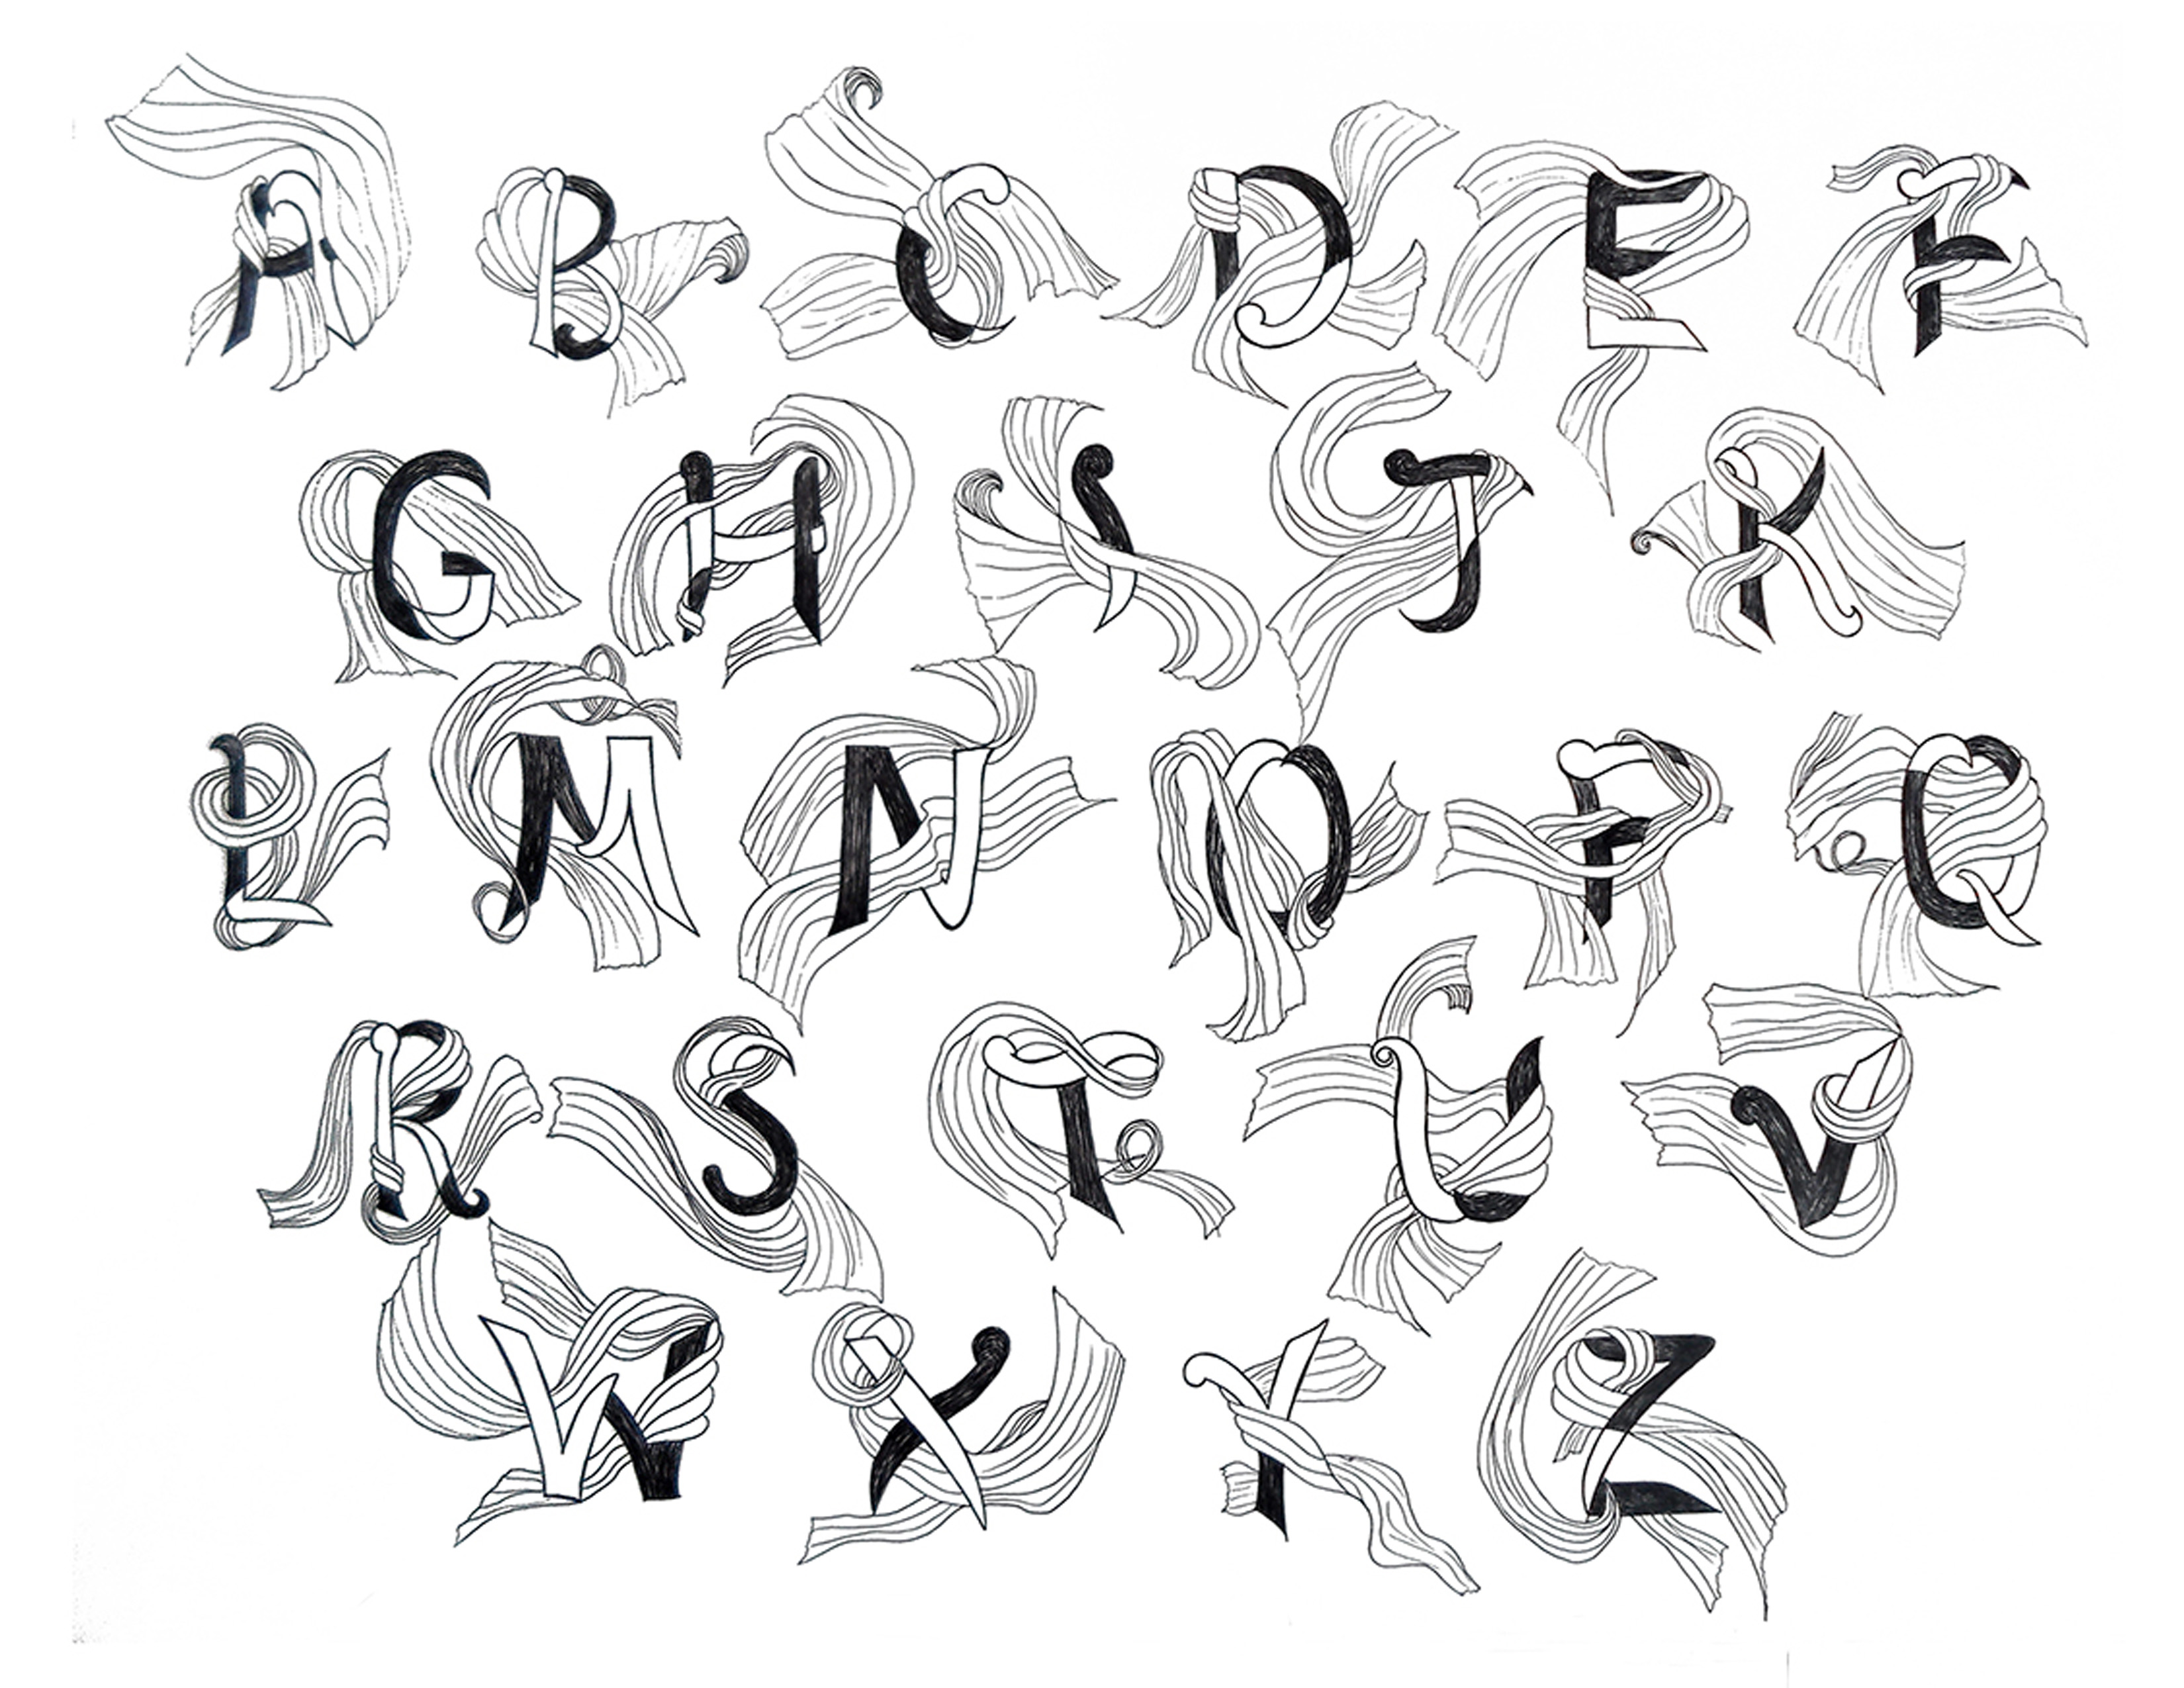 A B C D E F
G H I J K
L M N O P Q
R S T U V
W X Y Z